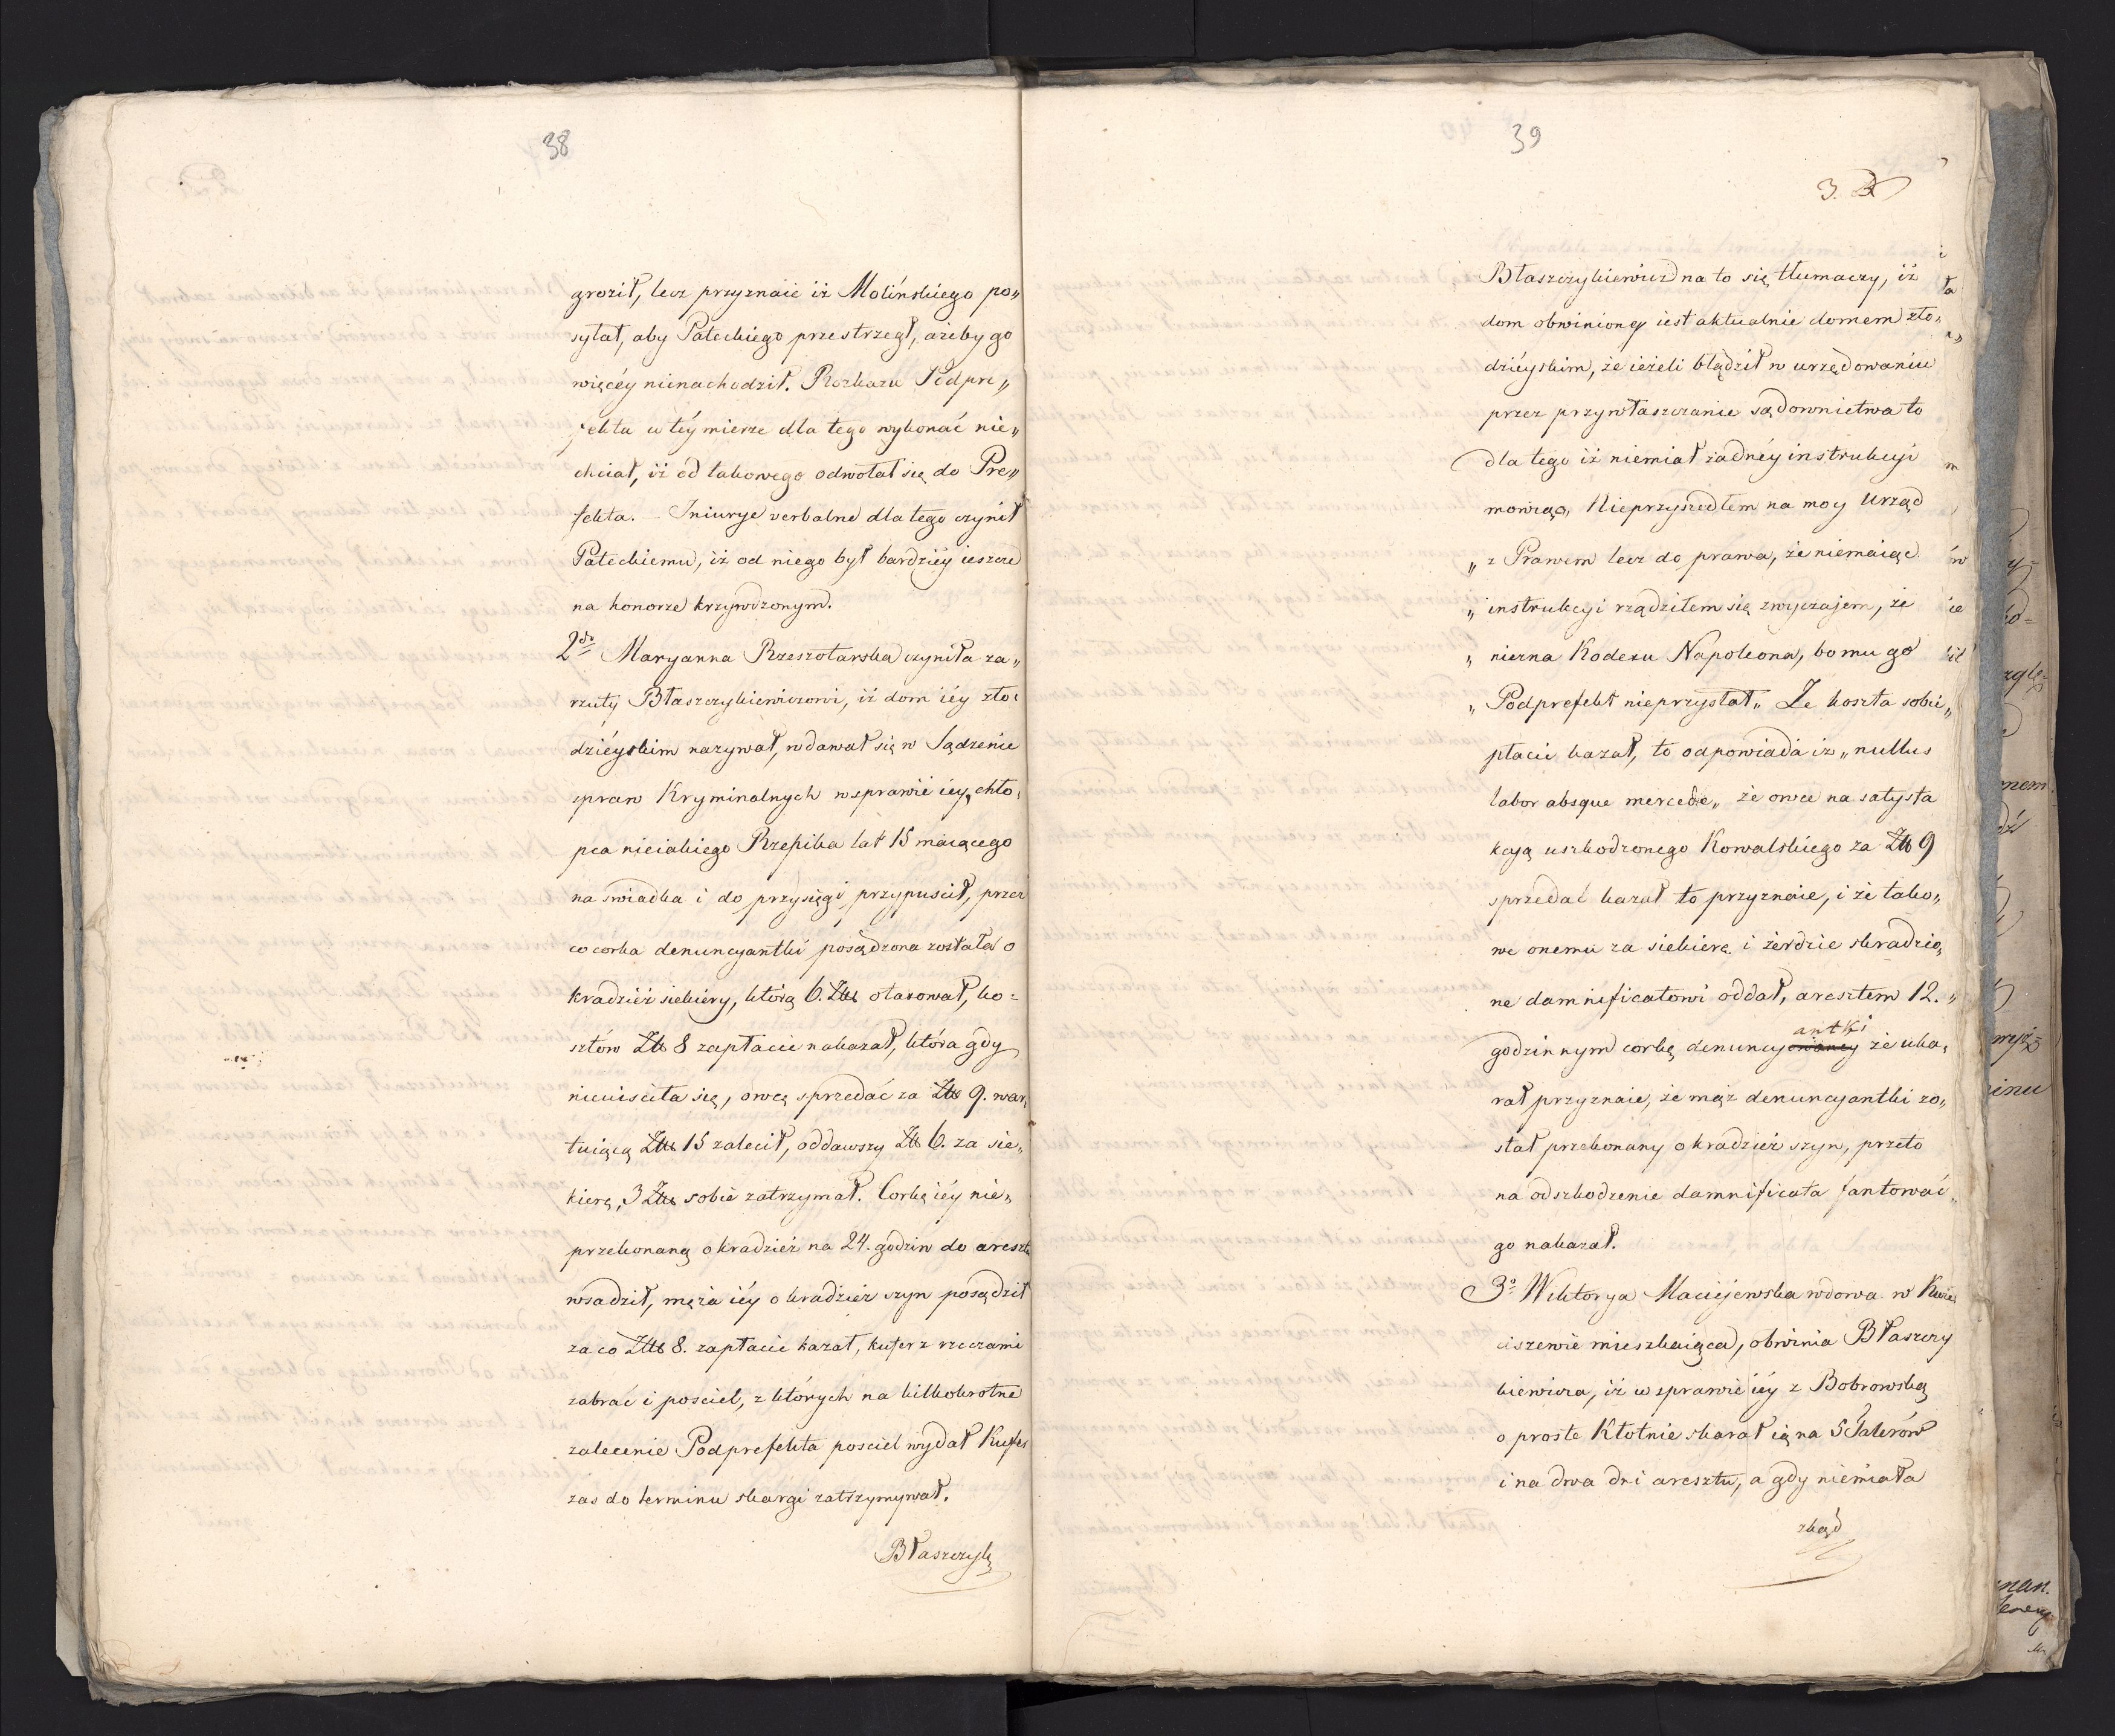 38
groził, lecz przyznaie iż Molińskiego po„
syłał, aby Pałeckiego przestrzegł, ażeby go
więcéy nienachodził. Rozkazu Podpre„
fekta w téy mierze dla tego wykonać nie„
chciał, iż od takowego odwołał się do Pre„
fekta. – Iniurye verbalne dla tego czynił
Pałeckiemu, iż od niego był bardziéy ieszcze
na honorze krzywdzonym.
2do Maryanna Rzeszotarska czyniła za„
rzuty Błaszczykiewiczowi, iż dom iéy zło„
dziéyskim nazywał, wdawał się w Sądzenie
spraw Kryminalnych w sprawie iéy, chło„
pca nieiakiego Rzepika lat 15 maiącego
na swiadka i do przysięgi przypuscił, przez
co corka denuncyantki posądzona została o
kradzież siekiery, którą 6. Złł otaxował, ko=
sztów Złł 8 zapłacić nakazał, która gdy
nieuisciła się, owcę sprzedać za Złł 9. war„
tuiącą Złł 15 zalecił, oddawszy Zł 6. za sie„
kierę, 3 Złł sobie zatrzymał. Corkę iéy nie„
przekonaną o kradzież na 24. godzin do areszt
wsadził, męża iéy o kradzież szyn posądził
za co Złł 8. zapłacić kazał, kufer z rzeczami
zabrać i posciel, z których na kilkokrotne
zalecenie Podprefekta posciel wydał Kufer
zas do terminu skargi zatrzymywał.
Błaszczyk
39
3.
Błaszczykiewicz na to się tłumaczy, iż
dom obwinioney iest aktualnie domem zło„
dziéyskim, że ieżeli błądził w urzędowaniu
przez przywłaszczanie sądownictwa to
dla tego iż niemiał żadnéy instrukcyi
mowiąc „ Nieprzyszedłem na moy Urząd
„ z Prawem lecz do prawa, że niemaiąc
„ instrukcyi rządziłem się zwyczajem, że
„ niezna Kodexu Napoleona, bo mu go
„ Podprefekt nieprzysłał„ Że koszta sobie„
płacić kazał, to odpowiada iż „nullus
labor absque mercede„ że owce na satysfa
kcyą uszkodzonego Kowalskiego za Złł 9
sprzedać kazał to przyznaie, i że tako„
we onemu za siekierę i żerdzie skradzio„
ne damnificatowi oddał, aresztem 12.„
godzinnym corkę denuncyantki że uka„
rał przyznaie, że mąż denuncyantki zo„
stał przekonany o kradzież szyn, przeto
na odszkodzenie damnificata fantować„
go nakazał.
3o Wiktorya Maciejewska wdowa w Kwie
ciszewie mieszkaiąca, obwinia Błaszczy
kiewicza, iż w sprawie iéy z Bobrowską
o proste Kłotnie skarał ią na 5 Talerów
i na dwa dni aresztu, a gdy niemiała
zkąd